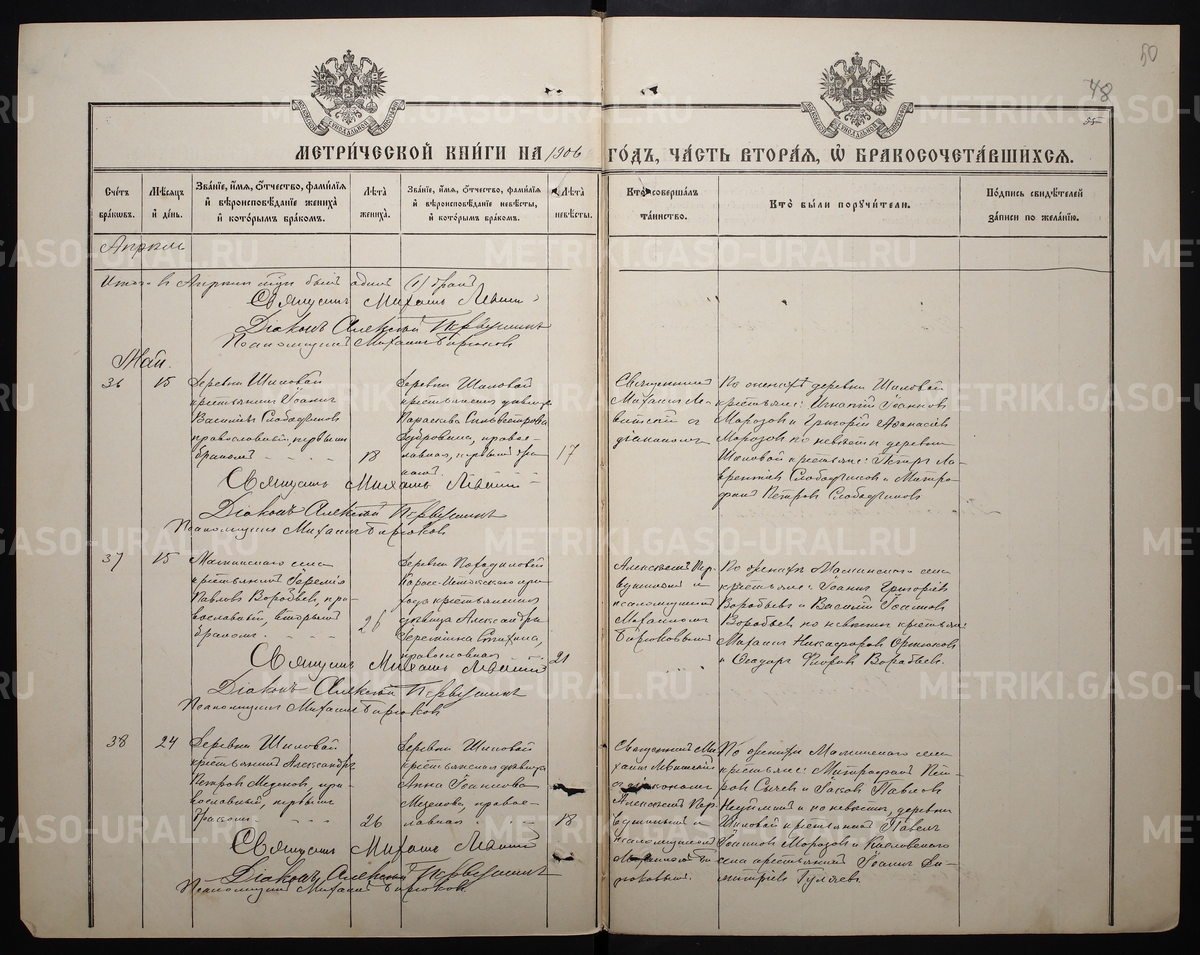 50
48
МЕТРИ́ЧЕСКОЙ КНИ́ГИ НА 1906 ГО́ДЪ, ЧА́СТЬ ВТОРА́Я, Ѡ БРАКОСОЧЕТА́ВШИХСЯ.
Сче́тъ бра́ковъ.
Мѣ́сяцъ и҆ де́нь.
Зва́нїе, и҆́мя, о҆́тчество, фами́лїя и҆ вѣроисповѣ́данїе жениха̀ и҆ кото́рымъ бра́комъ.
Лѣ́та жениха̀.
Зва́нїе, и҆́мя, о҆́тчество, фами́лїя и҆ вѣроисповѣ́данїе невѣ́сты, и҆ кото́рымъ бра́комъ.
Лѣ́та невѣ́сты.
Кто̀ соверша́лъ та́инство.
Кто̀ бы́ли поручи́тели.
По́дпись свидѣ́телей за́писи по жела́нїю.
Апрѣль
Итого въ Апрѣлѣ былъ одинъ (1) бракъ
Священникъ Михаилъ
Діаконъ Алексѣй Первушинъ
Псаломщикъ Михаилъ Бирюковъ
Май.
36
15
Деревни Шиловой
крестьянинъ Іоаннъ
Васильевъ Слободчиковъ
православный, первымъ
бракомъ
18
Деревни Шиловой
крестьянская дѣвица
Параскева Сильвестрова
православная, первымъ бра-
комъ
17
Священникъ
Михаилъ Ле-
витскій съ
діакономъ
По женихѣ деревни Шиловой
крестьяне: Игнатій Іоанновъ
Морозовъ и Григорій Аѳанасіевъ
Морозовъ по невѣстѣ деревни
Шиловой крестьяне: Петръ Ла-
врентіевъ Слободчиковъ и Митро-
фанъ Петровъ Слободчиковъ
Священникъ Михаилъ
Діаконъ Алексѣй Первушинъ
Псаломщикъ Михаилъ Бирюковъ
37
15
Маминскаго села
крестьянинъ Іеремія
Павловъ Воробьевъ, пра-
вославный, вторымъ
бракомъ.
26
Деревни
прихода крестьянская
дѣвица Александра
православная
21
Алексѣемъ Пер-
вушинымъ и
псаломщикомъ
Михаиломъ
Бирюковымъ
По женихѣ Маминскаго села
крестьяне: Іоаннъ Григорьевъ
Воробьевъ и Василій
Воробьевъ по невѣстѣ крестьяне:
Михаилъ Никифоровъ
и Ѳеодоръ Воробьевъ.
Священникъ Михаилъ
Діаконъ Алексѣй Первушинъ
Псаломщикъ Михаилъ Бирюковъ
38
24
Деревни Шиловой
крестьянинъ Александръ
Петровъ пра-
вославный, первымъ
бракомъ
26
Деревни Шиловой
крестьянская дѣвица
Анна Іоаннова
правос-
лавная
18
Священникъ Ми-
хаилъ Левитскій
съ діакономъ
Алексѣемъ Пер-
вушинымъ и
псаломщикомъ
Михаиломъ Би-
рюковымъ.
По женихѣ Маминскаго села
крестьяне: Митрофанъ Пет-
ровъ Сычевъ и Іаковъ Павловъ
и по невѣстѣ, деревни
Шиловой крестьянинъ Павелъ
Іоанновъ Морозовъ и
села крестьянинъ Іоаннъ Ди-
митріевъ Гуляевъ.
Священникъ Михаилъ
Діаконъ Алексѣй Первушинъ
Псаломщикъ Михаилъ Бирюковъ
METRIKI.GASO-URAL.RU